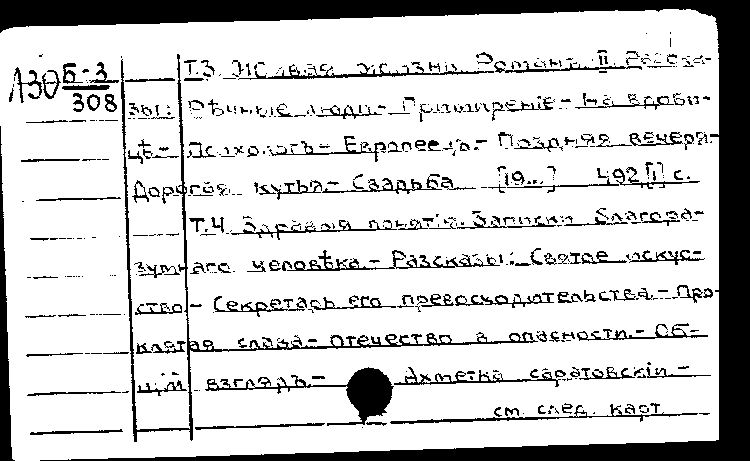 Л30 Б-3/308
Т.3. Живая жизнь. Романъ. II. Расска-
зы: Вѣчные люди.- Примиреніе.- На вдови-
цѣ.- Психологъ.- Европеецъ.- Поздняя вечеря.-
Дорогая кутья.- Свадьба [19...] 492 [1] с.
Т.4. Здравыя понятія. Записки благора-
зумнаго человѣка.- Разсказы: Святое искус-
ство.- Секретарь его превосходительства.- Про-
клятая слава.- Отечество в опасности.- Об-
щій взглядъ.- Ахметка саратовскій.-
см. след. карт.